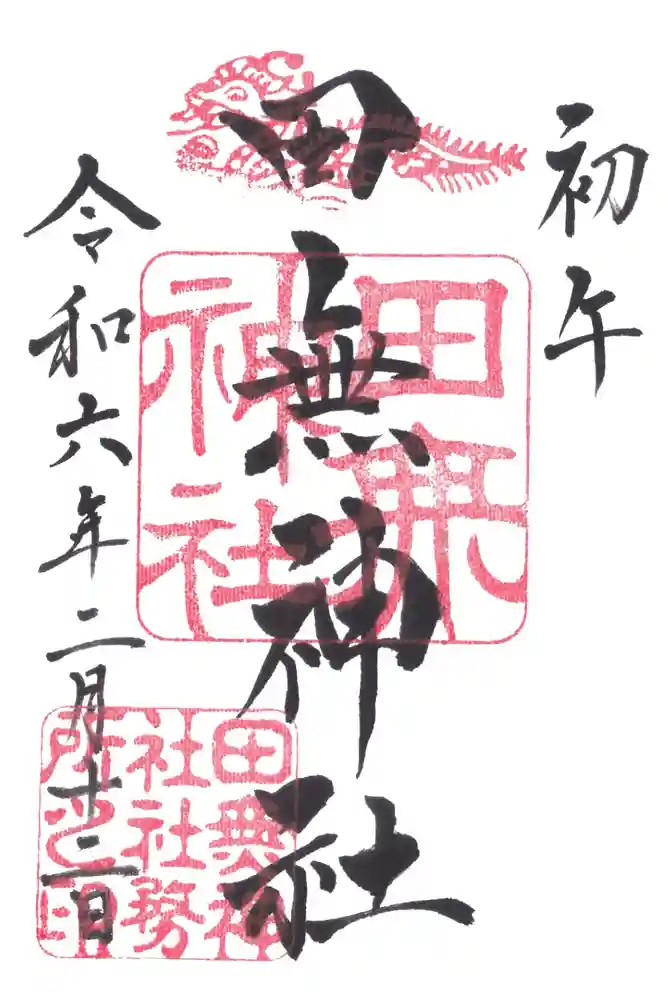 初午
田無神社
令和六年二月十二日
田無神社
田無神社社務所之印